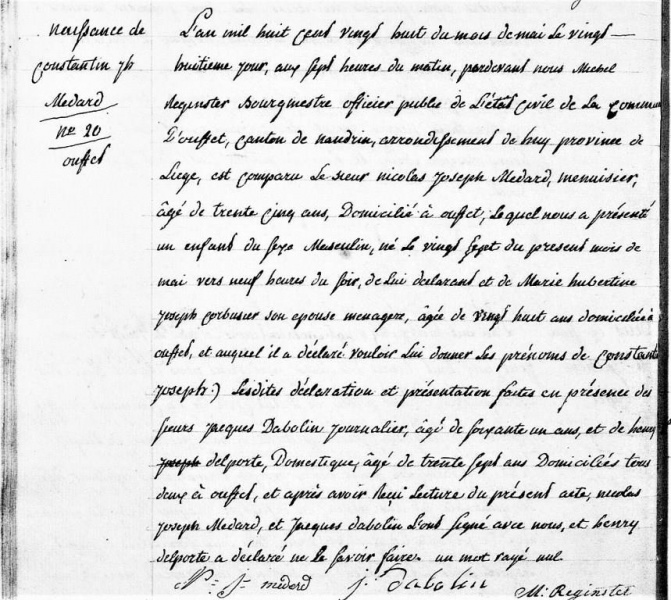 naissance de
Constantin jh
Medard
no 20
ouffet
L'an mil huit cent vingt huit du mois de mai le vingt
huitieme jour, aux sept heures du matin, pardevant nous Michel
Reginster Bourgmestre officier public de L'état civil de La commune
D'ouffet, canton de nandrin, arrondissement de huy province de
Liege, est comparu Le sieur nicolas joseph Medard, menuisier,
âgé de trente cinq ans, Domicilié à ouffet, Lequel nous a présenté
un enfant du sexe Masculin, né Le vingt sept du present mois de
mai vers neuf heures du soir, de Lui declarant et de Marie hubertine
joseph corbusier son epouse menagere, âgée de vingt huit ans domiciliée à
ouffet, et auquel il a déclaré vouloir Lui donner Les prénoms de Constantin
joseph:) Lesdites déclaration et présentation faites en présence des
sieurs jacques Dabolin journalier, âgé de soixante un ans, et de henry
joseph delporte, Domestique, âgé de trente sept ans Domiciliés tous
deux à ouffet, et après avoir Reçu Lecture du présent acte, nicolas
joseph Medard, et jacques dabolin L'ont signé avec nous, et henry
delporte a déclaré ne le savoir faire. un mot rayé nul
N: J: medard J: Dabolin M. Reginster